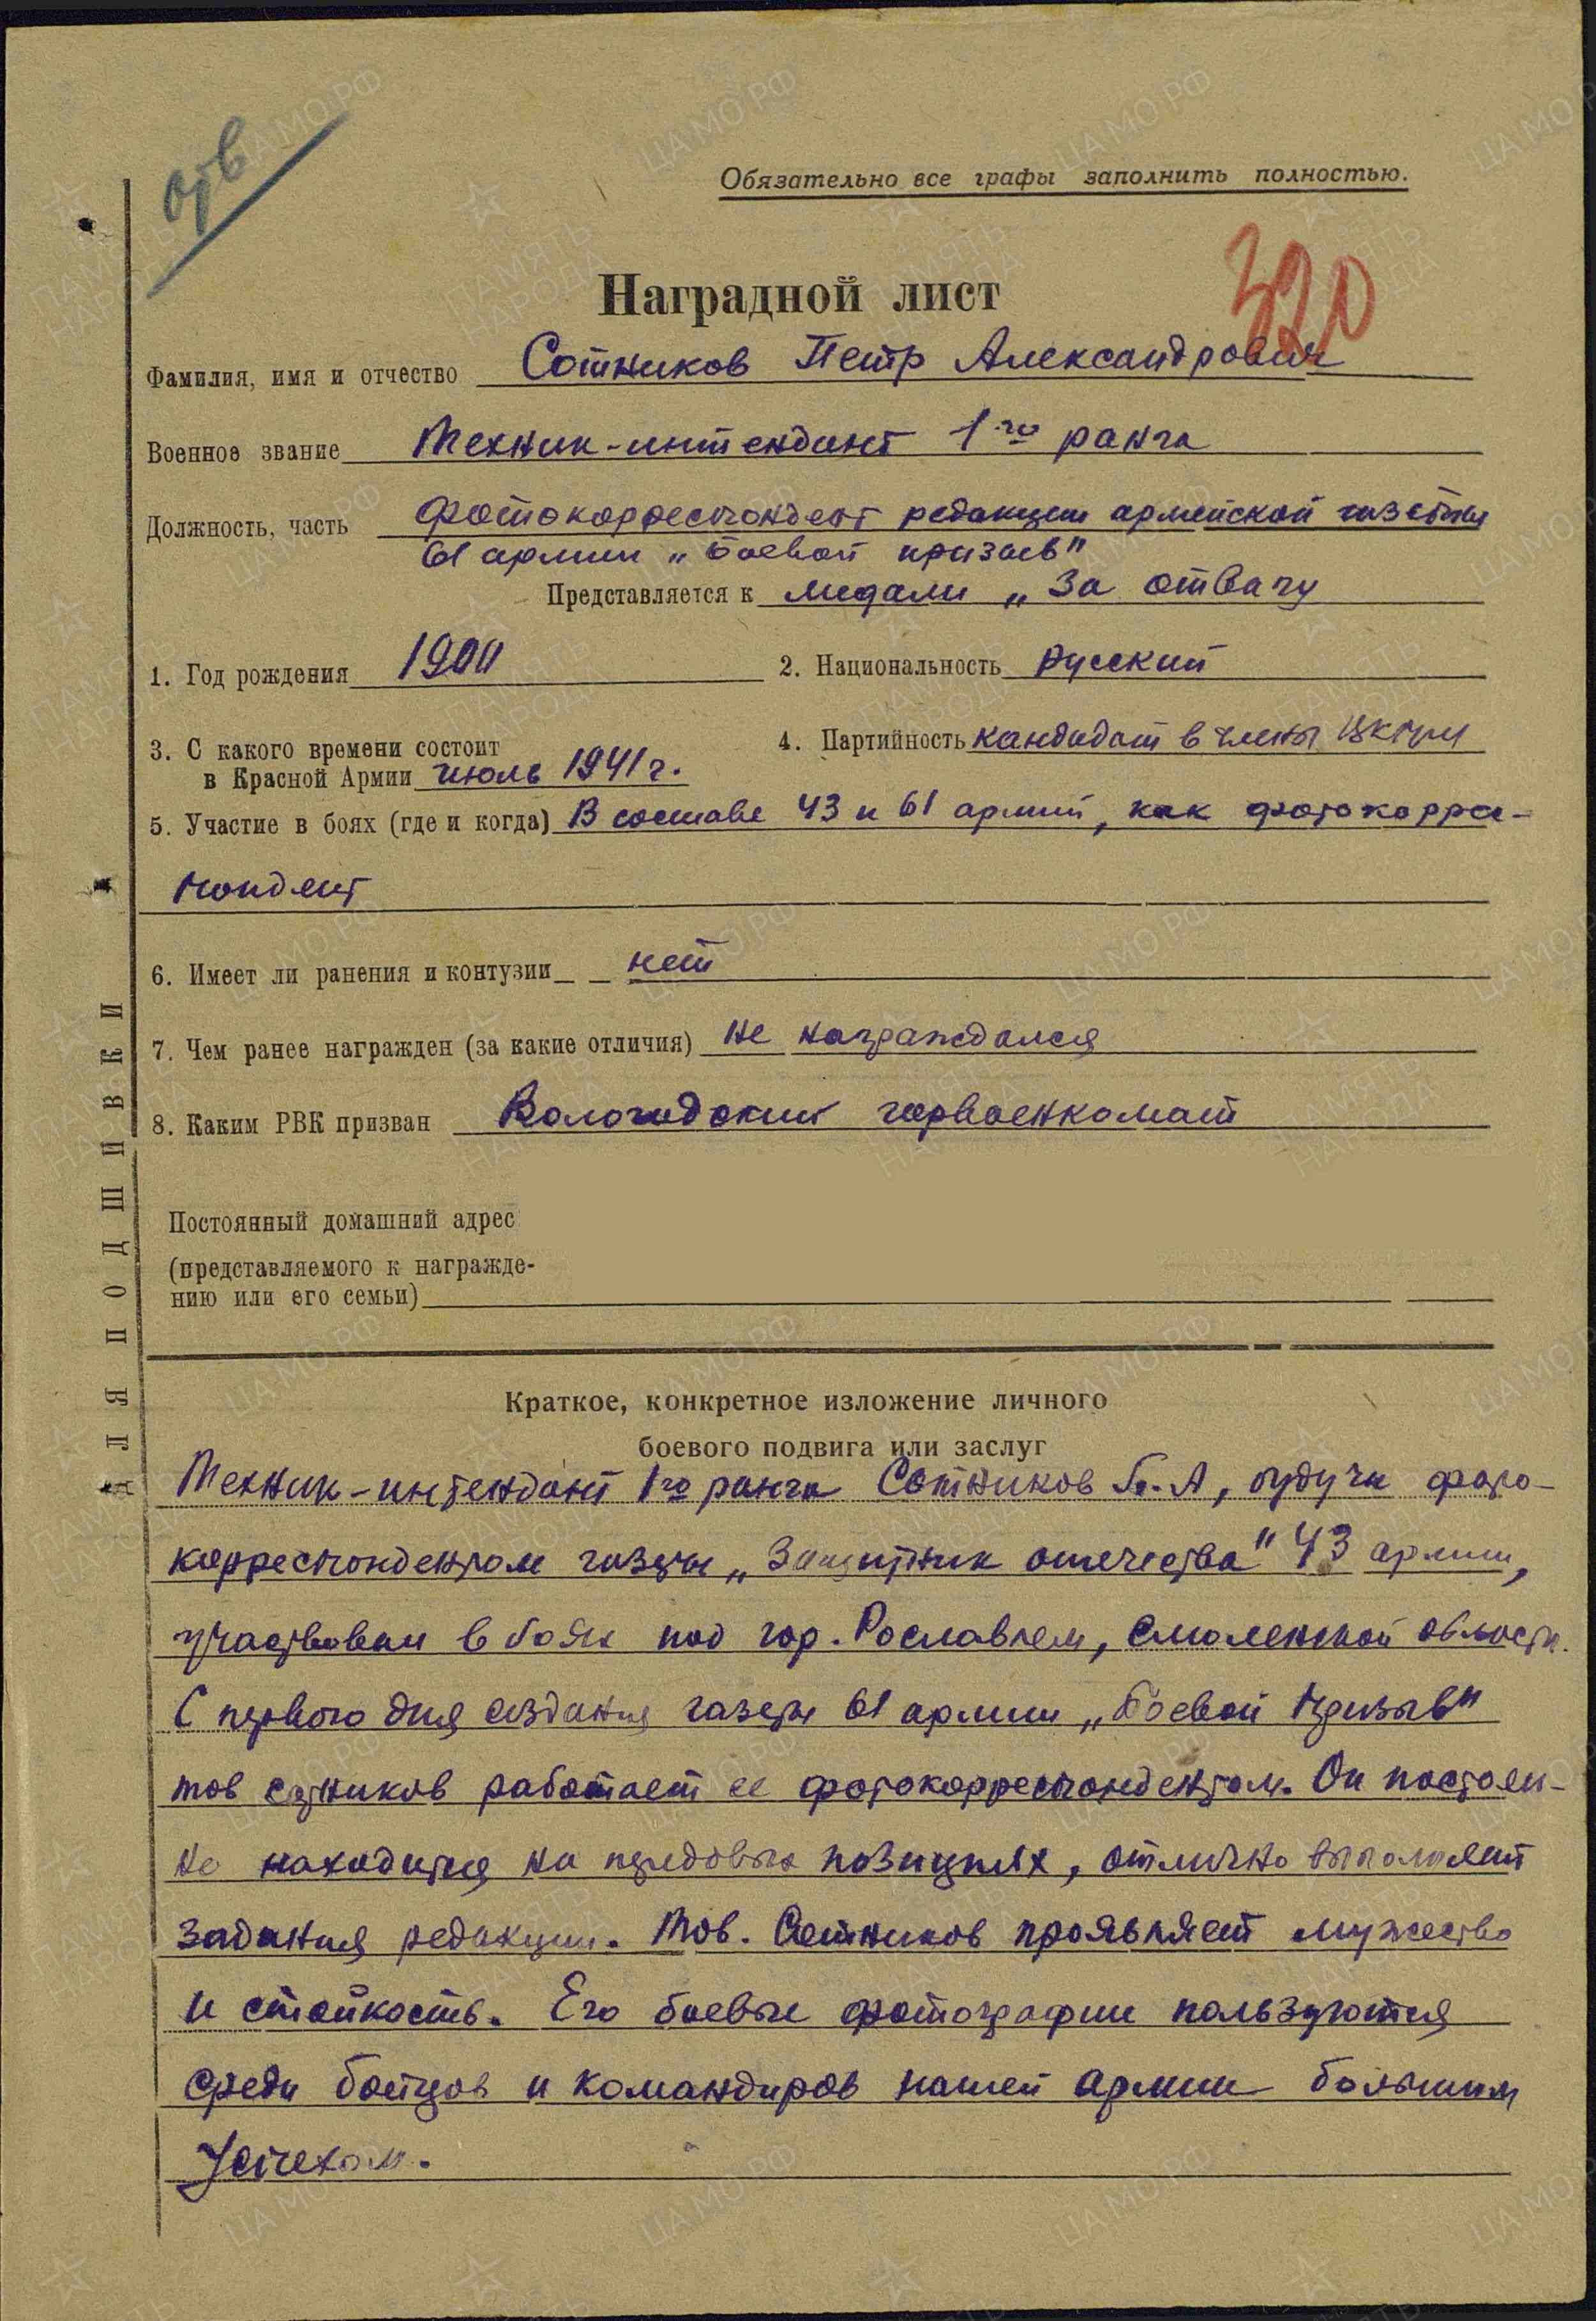 отв
Обязательно все графы заполнить полностью.
320
Наградной лист
Фамилия, имя и отчество Сотников Петр Александрович
Военное звание Техник-интендант 1го ранга
Должность, часть фотокорреспондент редакции армейской газеты
61 армии „Боевой призыв"
Представляется к медали „За отвагу
1. Год рождения 1900
2. Национальность русский
3. С какого времени состоит
в Красной Армии июль 1941 г.
4. Партийность кандидат в члены
5. Участие в боях (где и когда) В составе 43 и 61 армий, как фотокорре-
спондент
6. Имеет ли ранения и контузии нет
7. Чем ранее награжден (за какие отличия) не награждался
8. Каким РВК призван Вологодский горвоенкомат
Постоянный домашний адрес
(представляемого к награжде-
нию или его семьи)
Краткое, конкретное изложение личного
боевого подвига или заслуг
Техник-интендант 1го ранга Сотников П.А, будучи фото-
корреспондентом газеты „Защитник отечества" 43 армии,
участвовал в боях под гор. Рославлем, Смоленской области.
С первого дня создания газеты 61 армии „Боевой призыв"
тов сотников работает ее фотокорреспондентом. Он постоян-
но находится на передовых позициях, отлично выполняет
задания редакции. Тов. Сотников проявляет мужество
и стойкость. Его боевые фотографии пользуются
среди бойцов и командиров нашей армии большим
успехом.
ДЛЯ ПОДШИВКИ
ПАМЯТЬ НАРОДА
ЦАМО РФ